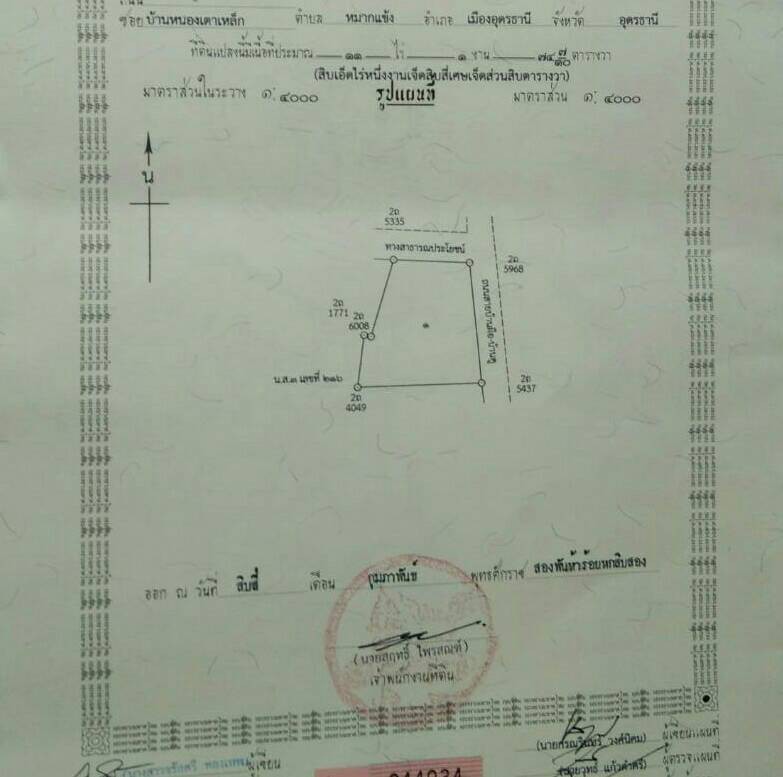 ซอย บ้านหนองเตาเหล็ก ตำบล หมากแข้ง อำเภอ เมืองอุดรธานี จังหวัด อุดรธานี
ที่ดินแปลงนี้มีเนื้อที่ประมาณ ๑๑ ไร่ ๑ งาน ๗๔ ๗/๑๐ ตารางวา
(สิบเอ็ดไร่หนึ่งงานเจ็ดสิบสี่เศษเจ็ดส่วนสิบตารางวา)
มาตราส่วนในระวาง ๑: ๔๐๐๐ รูปแผนที่ มาตราส่วน ๑: ๔๐๐๐
น
2ถ
5335
ทางสาธารณประโยชน์
2ถ
5968
2ถ
1771
2ถ
6008
๑
น.ส.๓ เลขที่ ๒๑๖
2ถ
5437
2ถ
4049
ออก ณ วันที่ สิบสี่ เดือน กุมภาพันธ์ พุทธศักราช สองพันห้าร้อยหกสิบสอง
(นายสุฤทธิ์ ไพรสณฑ์)
เจ้าพนักงานที่ดิน
วงศ์นิคม) ผู้เขียนแผนที่
ผู้เขียน
แก้วคำศรี) ผู้ตรวจแผนที่